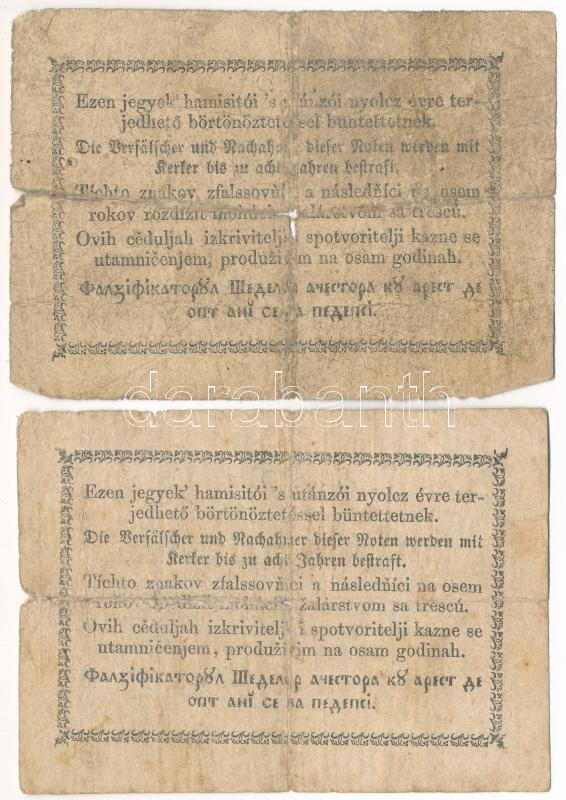 Ezen jegyek' hamisitói 's utánzói nyolcz évre ter-
jedhető börtönöztetéssel büntettetnek.
Die Verfälscher und Nachahmer dieser Noten werden mit
Kerker bis zu acht Jahren bestraft.
Tíchto znakov zfalssovňíci a následňíci na osem
rokov rozdížit žalárstvom sa trescú.
Ovih cěduljah izkrivitelji spotvoritelji kazne se
utamničenjem, produžim na osam godinah.
Фалꙁіфікаторꙋл Шеделор ачестора кꙋ арест де
опт анї се ва педепсі.
darabanth
Ezen jegyek' hamisitói 's utánzói nyolcz évre ter-
jedhető börtönöztetéssel büntettetnek.
Die Verfälscher und Nachahmer dieser Noten werden mit
Kerker bis zu acht Jahren bestraft.
Tíchto znakov zfalssovňíci a následňíci na osem
rokov žalárstvom sa trescú.
Ovih cěduljah izkrivitelji spotvoritelji kazne se
utamničenjem, na osam godinah.
Фалꙁіфікаторꙋл Шеделор ачестора кꙋ арест де
опт анї се ва педепсі.